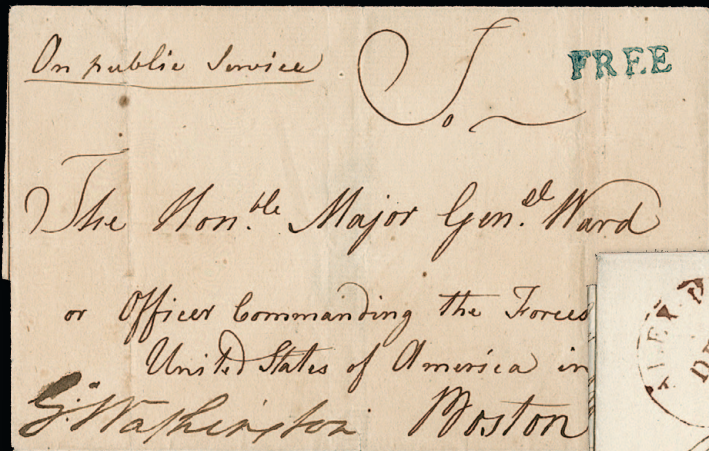 On public Service
FREE
To
The Hon.ble Major Gen.al Ward
or Officer Commanding the Forces
United States of America in
Go: Washington Boston